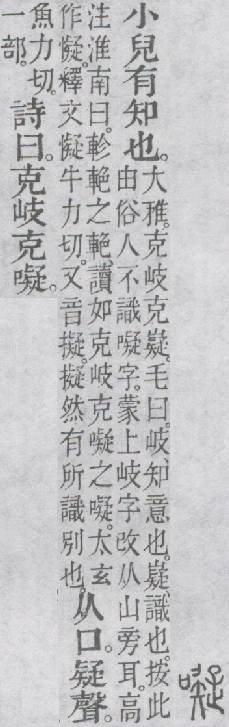 㘈
小兒有知也。
大雅。克岐克嶷。毛曰。岐、知意也。嶷、識也。按此
由俗人不識㘈字。蒙上岐字改从山旁耳。高
注淮南曰。軫䡾之䡾讀如克岐克㘈之㘈。太玄
作懝。釋文懝牛力切。又音擬。擬然有所識別也。
从口。疑聲。
魚力切。
一部。
詩曰。克岐克㘈。